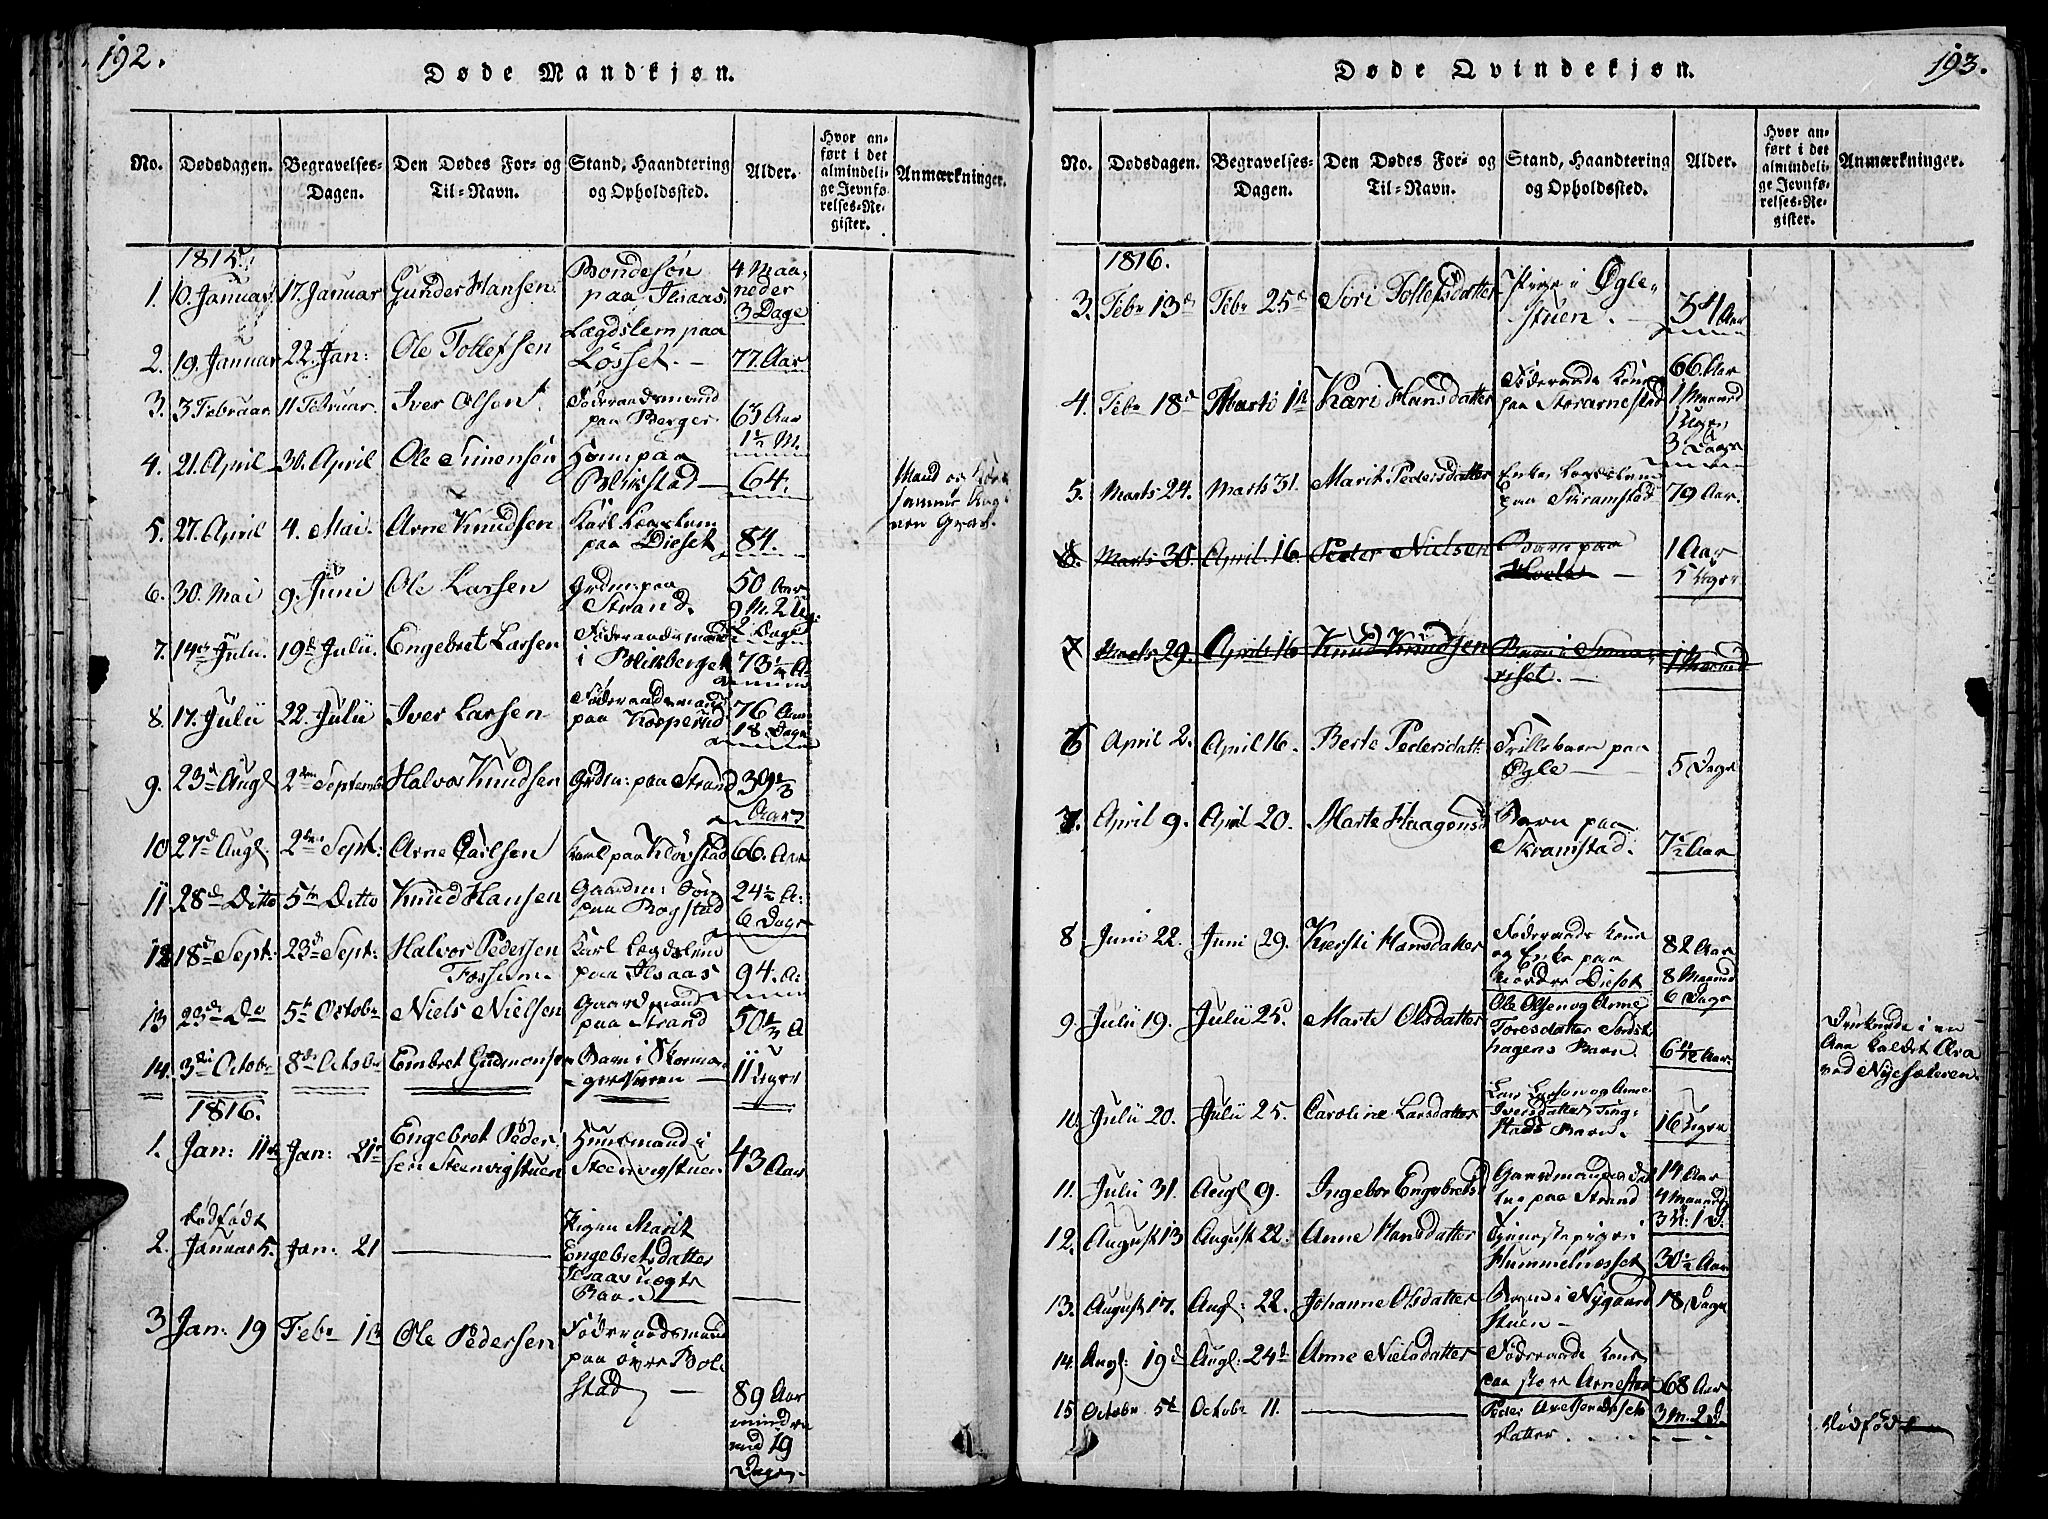 192.
Døde Mandkjøn.
No. Dødsdagen. Begravelses-Dagen. Den Dødes For- og Til-Navn. Stand, Haandtering og Opholdssted. Alder. Hvor anført i det almindelige Jevnførelses-Register. Anmærkninger.
1815.
1. 10. Januar. 17. Januar Gunder Hansen. Bondesøn paa Ilsaas 4 Maaneder 3 Dage
2. 19. Januar 22. Jan: Ole Tollefsen Lægdslem paa Løsset. 77. Aar
3. 3 Februar 11 Februar. Iver Olsen Föderaadsmand paa Berger 63 Aar 1½ M.
4. 21. April 30. April Ole Simensen paa Blikstad 64. Mand og
5. 27. April 4. Mai. Arne Knudsen Karl paa Dieset 84. Grav.
6. 30. Mai 9. Juni Ole Larsen Grdm: paa Strand. 50 Aar 9 M. 2 Ug: 2 Dage
7. 14de Julii. 19de Julii. Engebret Larsen Föderaadsmand i Blikberget 73½ A
8. 17. Julii 22. Julii Iver Larsen Föderaadsmand paa Kopperud 76 Aar 18. Dage
9. 23d Augl 2den Septembr Halvor Knudsen Grdm: paa Strand 39⅔ Aar
10 27d Augl: 2den Sept: Arne Carlsen Karl paa Kløvstad 66. Aar
11 28de Ditto 5te Ditto Knud Hansen Gaardm: Søn paa Rogstad 24½ A: 6 Dage
12 18de Sept: 23d Sept: Halvor Pedersen Fossum Karl Lægdslem paa Ilsaas 94. A:
13 23de Do 5te Octobr Niels Nielsen Gaardmand paa Strand 50½ A
14. 3die Octobr 8de Octobr Embret Gudmonsen Barn i 11 Uger
1816.
1. Jan: 11te Jan: 21de Engebret Pedersen Steenvigstuen Huusmand i Steenvigstuen 43 Aar
2. dødfødt Januar 5. Jan: 21 — Pigen Marit Engebretsdatter Ilsaas uægte Barn.
3 Jan: 19 Febr 1ste Ole Pedersen Föderaadsmand paa øvre Bolstad — 89 Aar mindre end 19 Dage
193.
Døde Qvindekjøn.
No. Dødsdagen. Begravelses-Dagen. Den Dødes For- og Til-Navn. Stand, Haandtering og Opholdssted. Alder. Hvor anført i det almindelige Jevnførelses-Register. Anmærkninger.
1816.
3. Febr 13de Febr 25de Siri Tollefsdatter Pige i Øglestuen. 54 Aar
4. Febr 18de Marti 1ste Kari Hansdatter Föderaads Kone paa Storarnestad 66 Aar 1 Maaned 1 Uge, 3 Dage
5. Marts 24. Marts 31. Marit Pedersdatter Enke, Lægdslem paa Skramstad 79 Aar.
6. Marts 30. April 16. Peder Nielsen Barn paa 1 Aar 5 Uger
7 Marts 29. April 16 Knud Knudsen Barn i 1 Maaned
6 April 2. April 16. Berte Pedersdatt. Frillebarn paa Øgle 5 Dage
7. April 9. April 20. Marte Haagensd Barn paa Skramstad. 7½ Aar
8 Juni 22. Juni 29. Kiersti Hansdatter Föderaads Kone og Enke paa Nordre Dieset 82 Aar 8 Maaned 6 Dage
9. Julii 19. Julii 25d Marte Olsdatter Ole Olsen og Anne Toresdatter hagens Barn 6 Aar. Druknede i en Aa kaldet Øra ved Nysæteren.
10. Julii 20. Julii 25. Caroline Larsdatter Lars Larsen og Anne Iversdatter Tingstads Barn. 16 Uger
11. Julii 31. Augl 9. Ingebor Engebretsd Gaardmands datter paa Strand 14 Aar 4 Maaned 3 U: 1 D.
12. August 13 August 22. Anne Hansdatter Tjenestepige i Hummelnæsset 30½ Aar
13. August 17. Augl: 22. Johanne Olsdatter Barn i Nygaardstuen 18 Dage
14. Augl: 19d Augl: 24d Anne Nielsdatter Föderaads Kone paa store Arnestad 68 Aar 3 M. 2 D.
15 Octobr 5te Octobr 11. — Peder datter Dødfødt